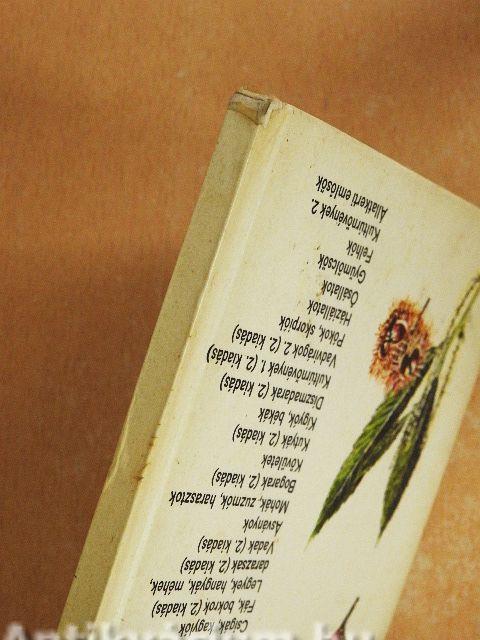 Csigák, kagylók
Fák, bokrok (2. kiadás)
Legyek, hangyák, méhek,
darazsak (2. kiadás)
Vadak (2. kiadás)
Ásványok
Mohák, zuzmók, harasztok
Bogarak (2. kiadás)
Kövületek
Kutyák (2. kiadás)
Kígyók, békák
Díszmadarak (2. kiadás)
Kultúrnövények 1. (2. kiadás)
Vadvirágok 2. (2. kiadás)
Pókok, skorpiók
Háziállatok
Ősállatok
Gyümölcsök
Felhők
Kultúrnövények 2.
Állatkerti emlősök